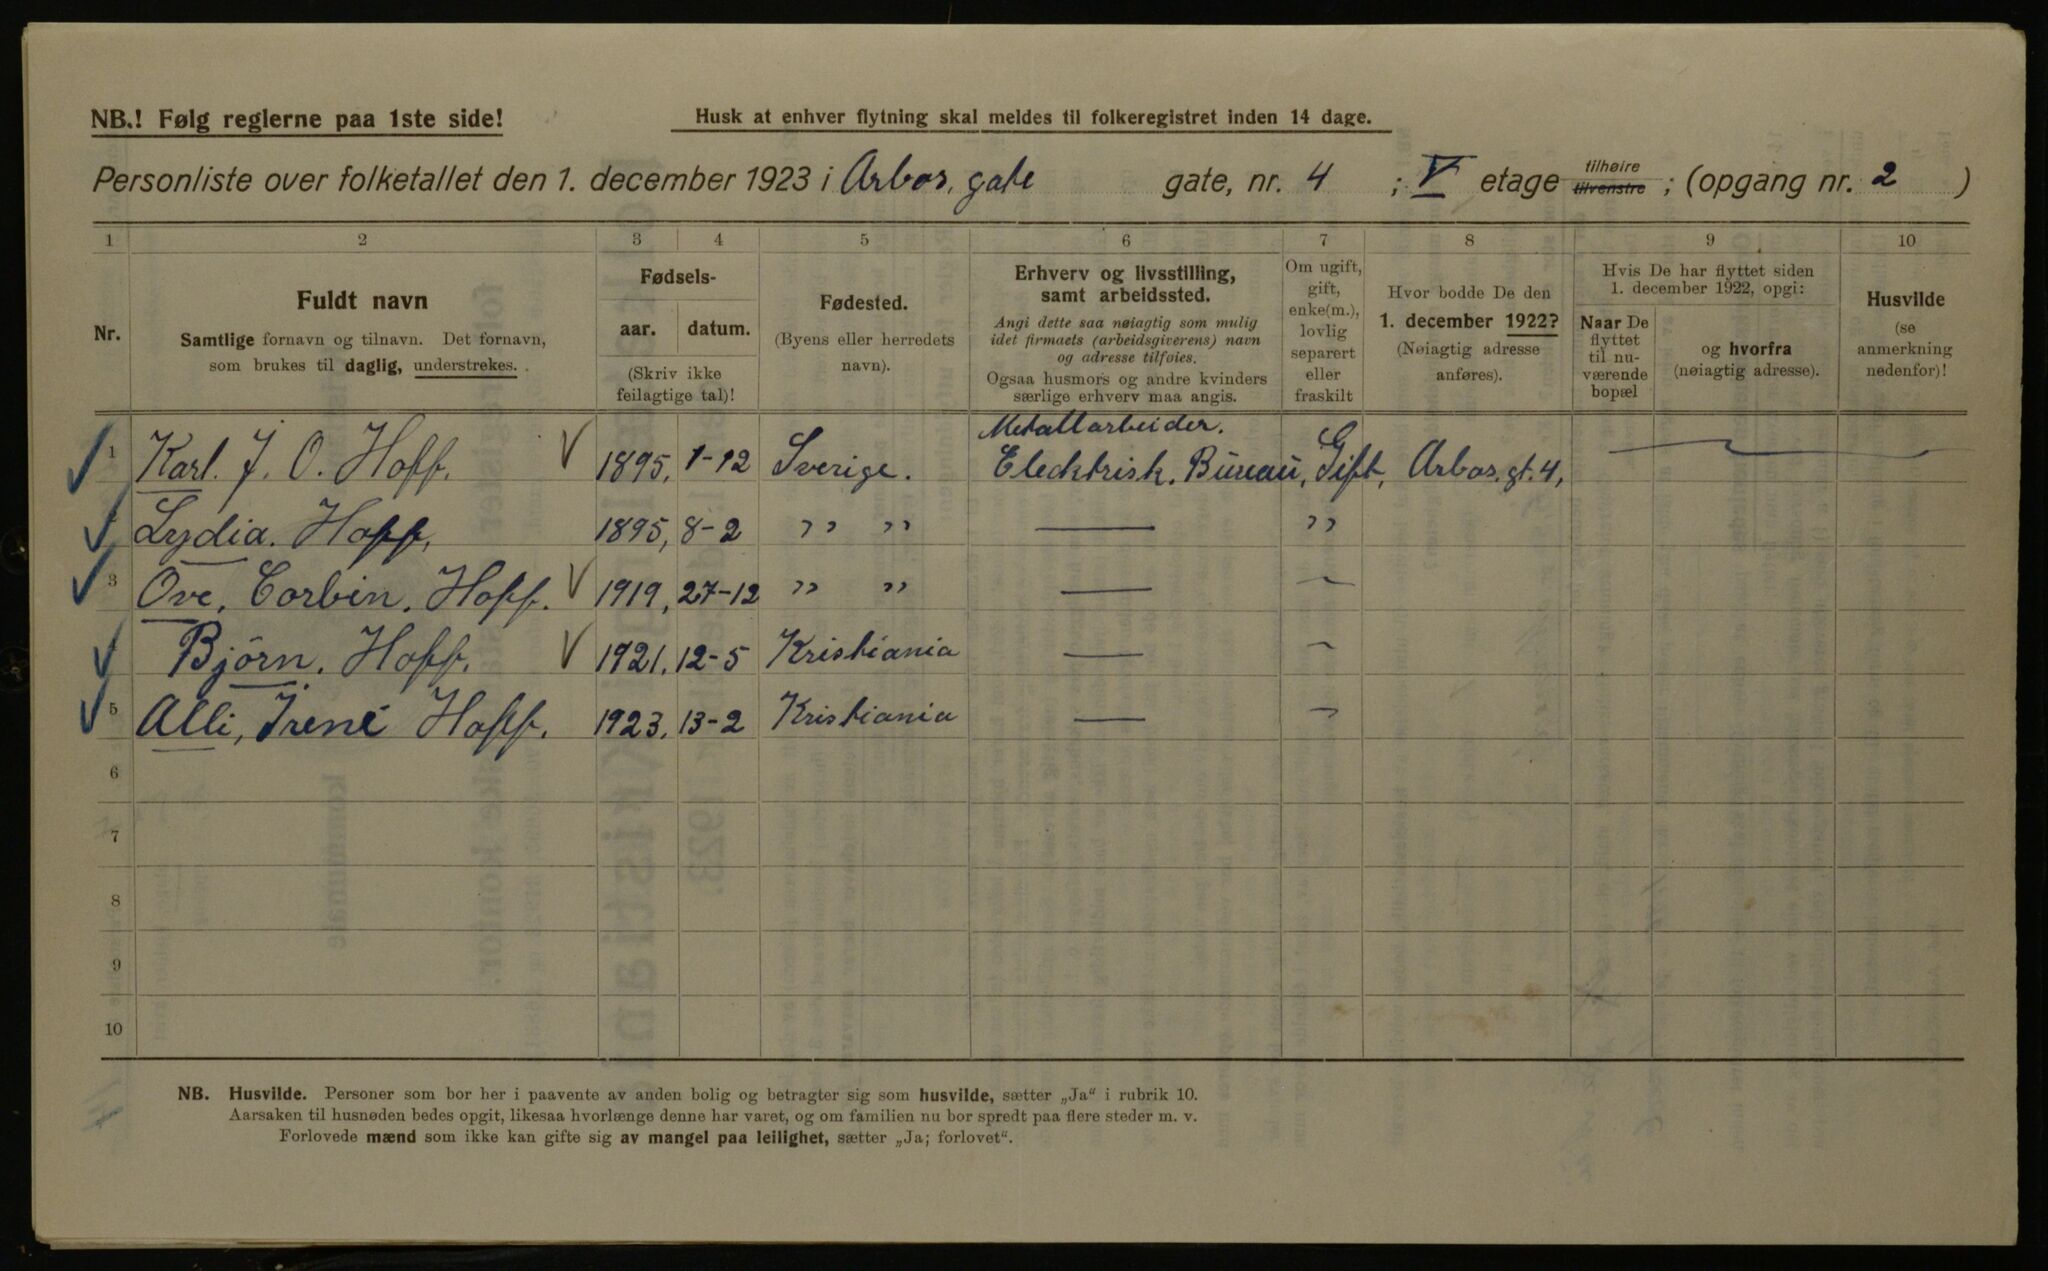 NB.! Følg reglerne paa 1ste side!
Husk at enhver flytning skal meldes til folkeregistret inden 14 dage.
Personliste over folketallet den 1. december 1923 i Arbos. gate gate, nr. 4 ; V etage tilhøire tilvenstre ; (opgang nr. 2 )
1 2 3 4 5 6 7 8 9 10
Nr.
Fuldt navn
Samtlige fornavn og tilnavn. Det fornavn,
som brukes til daglig, understrekes.
Fødsels-
aar. datum.
(Skriv ikke
feilagtige tal)!
Fødested.
(Byens eller herredets
navn).
Erhverv og livsstilling,
samt arbeidssted.
Angi dette saa nøiagtig som mulig
idet firmaets (arbeidsgiverens) navn
og adresse tilføies.
Ogsaa husmors og andre kvinders
særlige erhverv maa angis.
Om ugift,
gift,
enke(m.),
lovlig
separert
eller
fraskilt
Hvor bodde De den
1. december 1922?
(Nøiagtig adresse
anføres).
Hvis De har flyttet siden
1. december 1922, opgi:
Naar De
flyttet
til nu-
værende
bopæl
og hvorfra
(nøiagtig adresse).
Husvilde
(se
anmerkning
nedenfor)!
Metallarbeider.
1 Karl. J. O. Hoff. 1895, 1-12 Sverige. Elecktrisk. Bureau, Gift, Arbos. gt. 4,
Lydia. Hoff, 1895, 8-2 " " — "
3 Ove, Corbin. Hoff. 1919, 27-12 " " — -
Bjørn. Hoff. 1921. 12-5 Kristiania — -
5 Alli, Irene Hoff. 1923. 13-2 Kristiania — -
6
7
8
9
10
NB. Husvilde. Personer som bor her i paavente av anden bolig og betragter sig som husvilde, sætter „Ja“ i rubrik 10.
Aarsaken til husnøden bedes opgit, likesaa hvorlænge denne har varet, og om familien nu bor spredt paa flere steder m. v.
Forlovede mænd som ikke kan gifte sig av mangel paa leilighet, sætter „Ja; forlovet“.